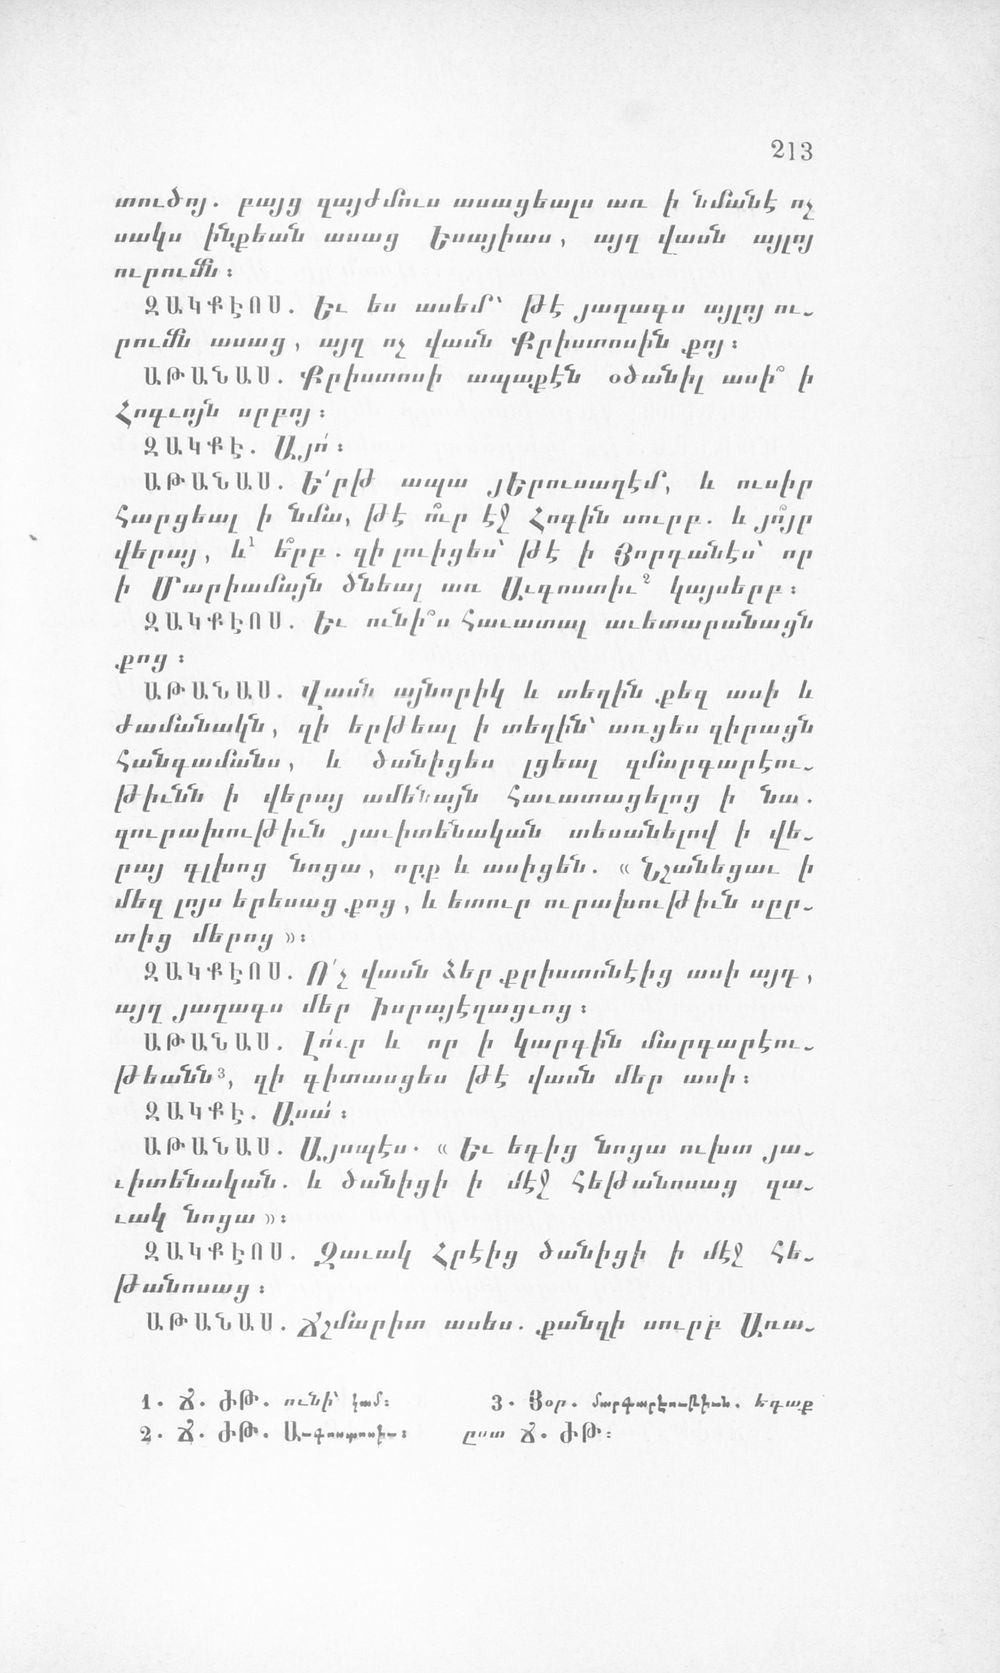 213
տուծոյ. բայց զայժմուս ասացեալս առ ի նմանէ ոչ
սակս ինքեան ասաց Եսայիաս, այղ վասն այլոյ
ուրումն:
ԶԱԿՔԷՈՍ. Եւ ես ասեմ՝ թէ յաղագս այլոյ ու-
րումն ասաց, այղ ոչ վասն Քրիստոսին քոյ:
ԱԹԱՆԱՍ. Քրիստոսի ապաքէն օծանիլ ասի՞ ի
Հոգւոյն սրբոյ:
ԶԱԿՔԷ. Այո՛:
ԱԹԱՆԱՍ. Ե՛րթ ապա յԵրուսաղէմ, և ուսիր
հարցեալ ի նմա, թէ ո՞ւր էջ Հոգին սուրբ. և յո՞յր
վերայ, և¹ ե՞րբ. զի լուիցես՝ թէ ի Յորդանէս՝ որ
ի Մարիամայն ծնեալ առ Աւգոստիւ² կայսերբ:
ԶԱԿՔԷՈՍ. Եւ ունի՞ս հաւատալ աւետարանացն
քոց:
ԱԹԱՆԱՍ. Վասն այնորիկ և տեղին քեզ ասի և
ժամանակն, զի երթեալ ի տեղին՝ առցես զիրացն
հանգամանս, և ծանիցես լցեալ զմարգարէու-
թիւնն ի վերայ ամենայն հաւատացելոց ի նա.
զուրախութիւն յաւիտենական տեսանելով ի վե-
րայ գլխոց նոցա, որք և ասիցեն. « Նշանեցաւ ի
մեզ լոյս երեսաց քոց, և ետուր ուրախութիւն սըր-
տից մերոց »:
ԶԱԿՔԷՈՍ. Ո՛չ վասն ձեր քրիստոնէից ասի այդ,
այղ յաղագս մեր իսրայէղացւոց:
ԱԹԱՆԱՍ. Լո՛ւր և որ ի կարգին մարդարէու-
թեանն³, զի գիտասցես թէ վասն մեր ասի:
ԶԱԿՔԷ. Ասա՛:
ԱԹԱՆԱՍ. Այսպէս. « Եւ եգից նոցա ուխտ յա-
ւիտենական. և ծանիցի ի մէջ հեթանոսաց զա-
ւակ նոցա »:
ԶԱԿՔԷՈՍ. Զաւակ Հրէից ծանիցի ի մէջ հե-
թանոսաց:
ԱԹԱՆԱՍ. Ճշմարիտ ասես. քանզի սուրբ Առա-
1. Ճ. ԺԹ. ունի՝ կամ:
2. Ճ. ԺԹ. Աւգոստոսիւ:
3. Յօր. մարգարէութիւն. եդաք
ըստ Ճ. ԺԹ: